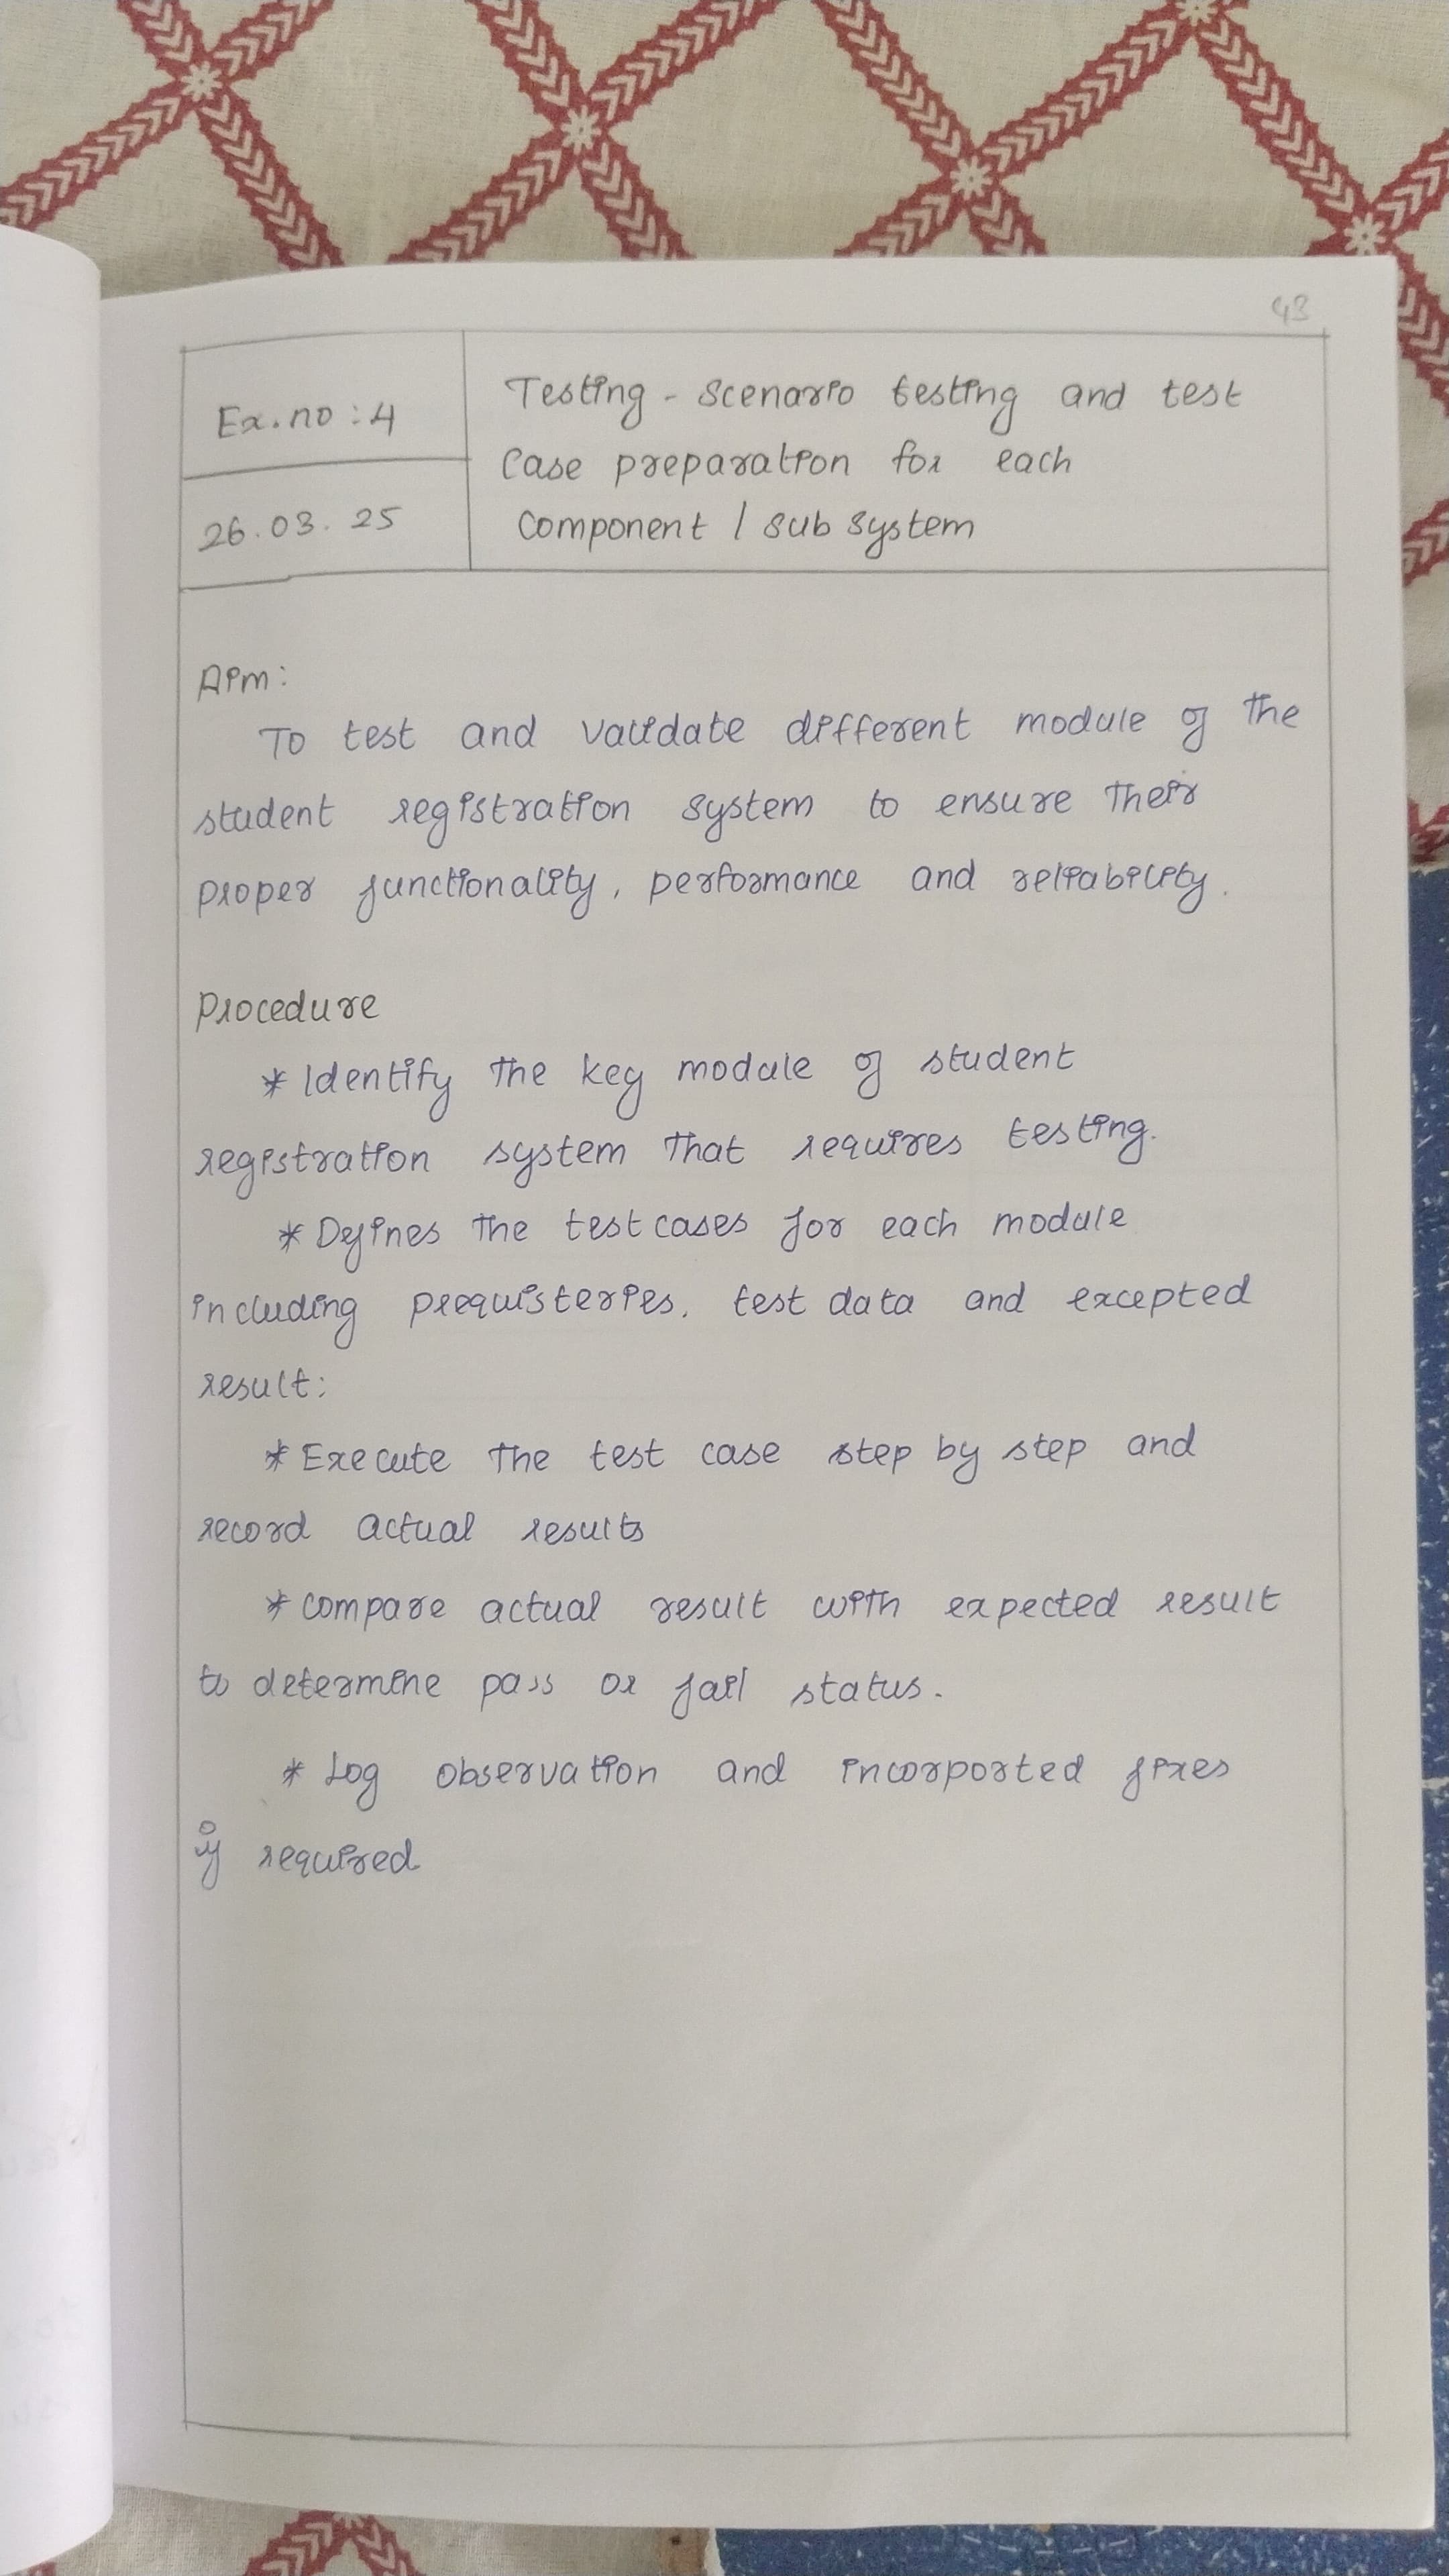 43
Ex.no : 4
Testing - Scenario testing and test
Case preparation for each
Component / Sub System
26.03.25
Aim:
To test and validate different module of the
student registration system to ensure their
proper functionality, performance and reliability.
Procedure
* Identify the key module of student
registration system that requires testing.
* Defines the test cases for each module
including prequisteries, test data and excepted
result:
* Execute the test case step by step and
record actual results
* Compare actual result with expected result
to determine pass or fail status.
* Log observation and incorported fixes
if required